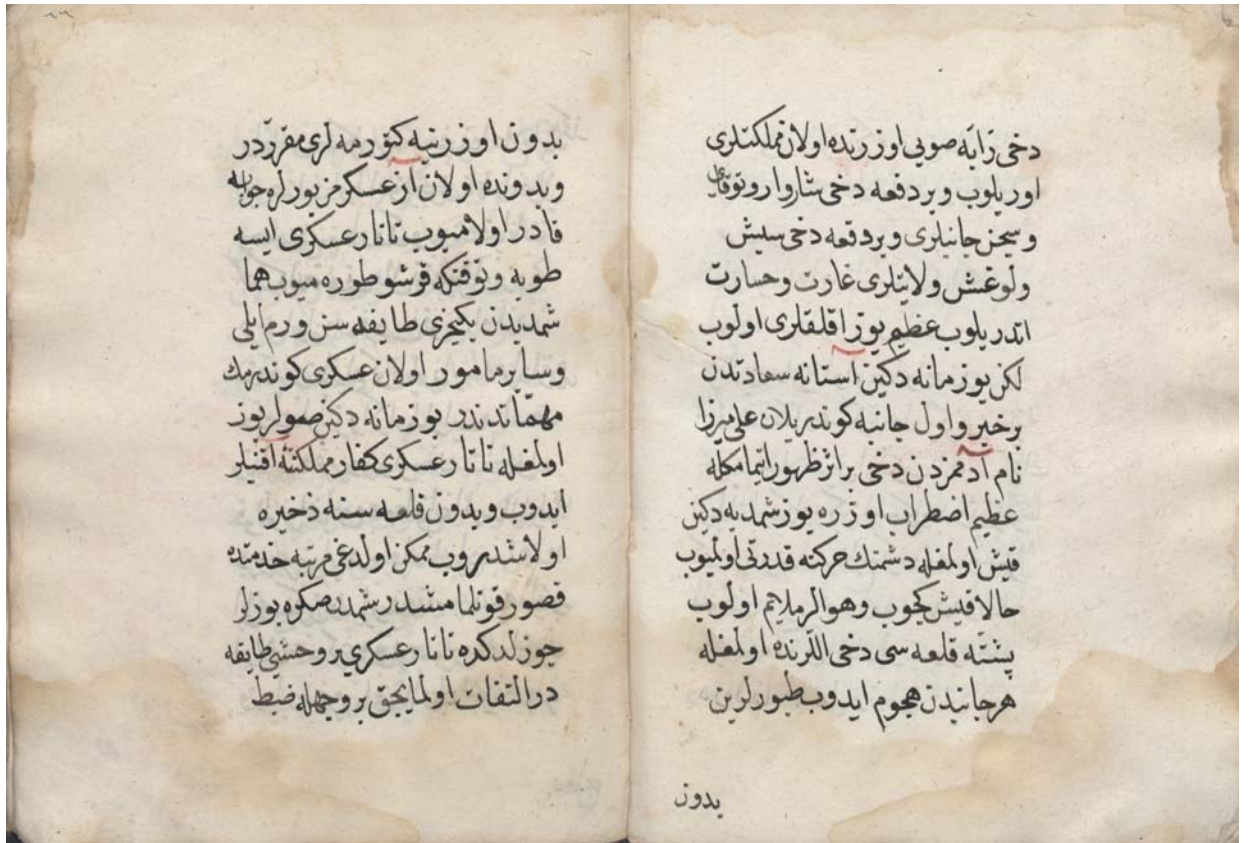 دخی زایه صویی اوزرنده اولان مملکتلری
اوریلوب وبر دفعه دخی شاروار وتوقای
وسجن جانبلری وبر دفعه دخی سیش
ولوغش ولایتلری غارت وحسارت
اتدریلوب عظیم یوز اقلقلری اولوب
لکن بوزمانه دکین آستانه سعادتدن
بر خبر واول جانبه کوندریلان علی میرزا
نام آدممزدن دخی بر اثر ظهور ایتمامکله
عظیم اضطراب اوزره یوز شمدیه دکین
قیش اولمغله دشمنك حرکته قدرتی اولمیوب
حالا قیش کچوب وهوالر ملایم اولوب
پشته قلعه سی دخی اللرنده اولمغله
هر جانبدن هجوم ایدوب طبورلرین
بدون
بدون اوزرینه کتورمه لری مقرردر
وبدونده اولان از عسکر مزبورلره جوابه
قادر اولامیوب تاتار عسکری ایسه
طوبه وتوفنکه قرشو طوره میوب هما
شمدیدن یکیچری طایفه سن وروم ایلی
وسایر مامور اولان عسکری کوندرمك
مهماتدندر بوزمانه دکین صولر بوز
اولمغله تاتار عسکری کفار مملکتنه اقنلر
ایدوب وبدون قلعه سنه ذخیره
اولاشدروب ممکن اولدغی مرتبه خدمتده
قصور قونلمامشدر شمدن صکره بوزلر
چوزلدکده تاتار عسکری بر وحشی طایفه
در التفات اولمایجق بر وجهله ضبط